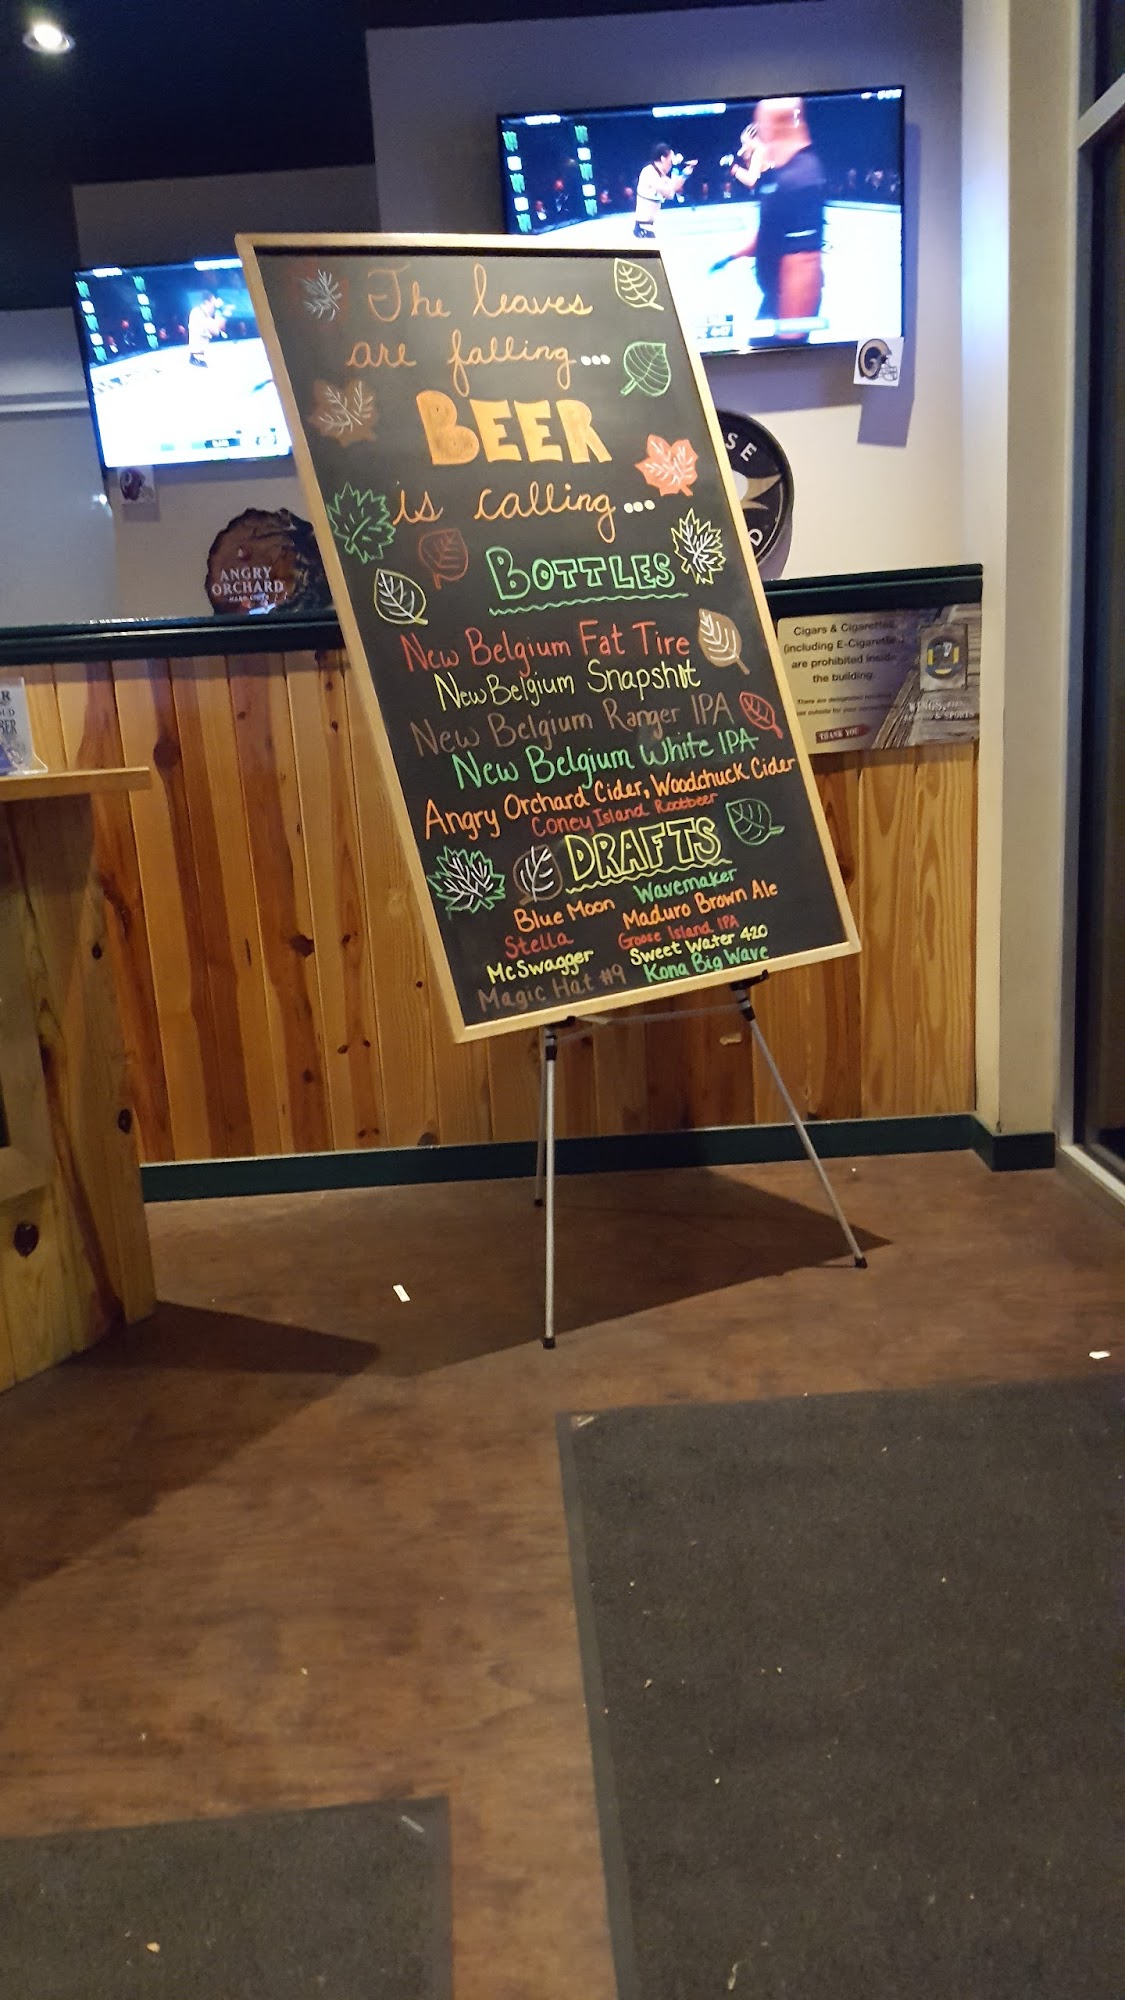 The leaves
are falling...
BEER
is calling...
BOTTLES
New Belgium Fat Tire
New Belgium Snapshot
New Belgium Ranger IPA
New Belgium White IPA
Angry Orchard Cider, Woodchuck Cider
Coney Island Rootbeer
DRAFTS
Blue Moon
Stella
McSwagger
Magic Hat #9
Wavemaker
Maduro Brown Ale
Goose Island IPA
Sweet Water 420
Kona Big Wave
ANGRY
ORCHARD
HARD CIDER
Cigars & Cigarettes
(including E-Cigarettes)
are prohibited inside
the building.
THANK YOU